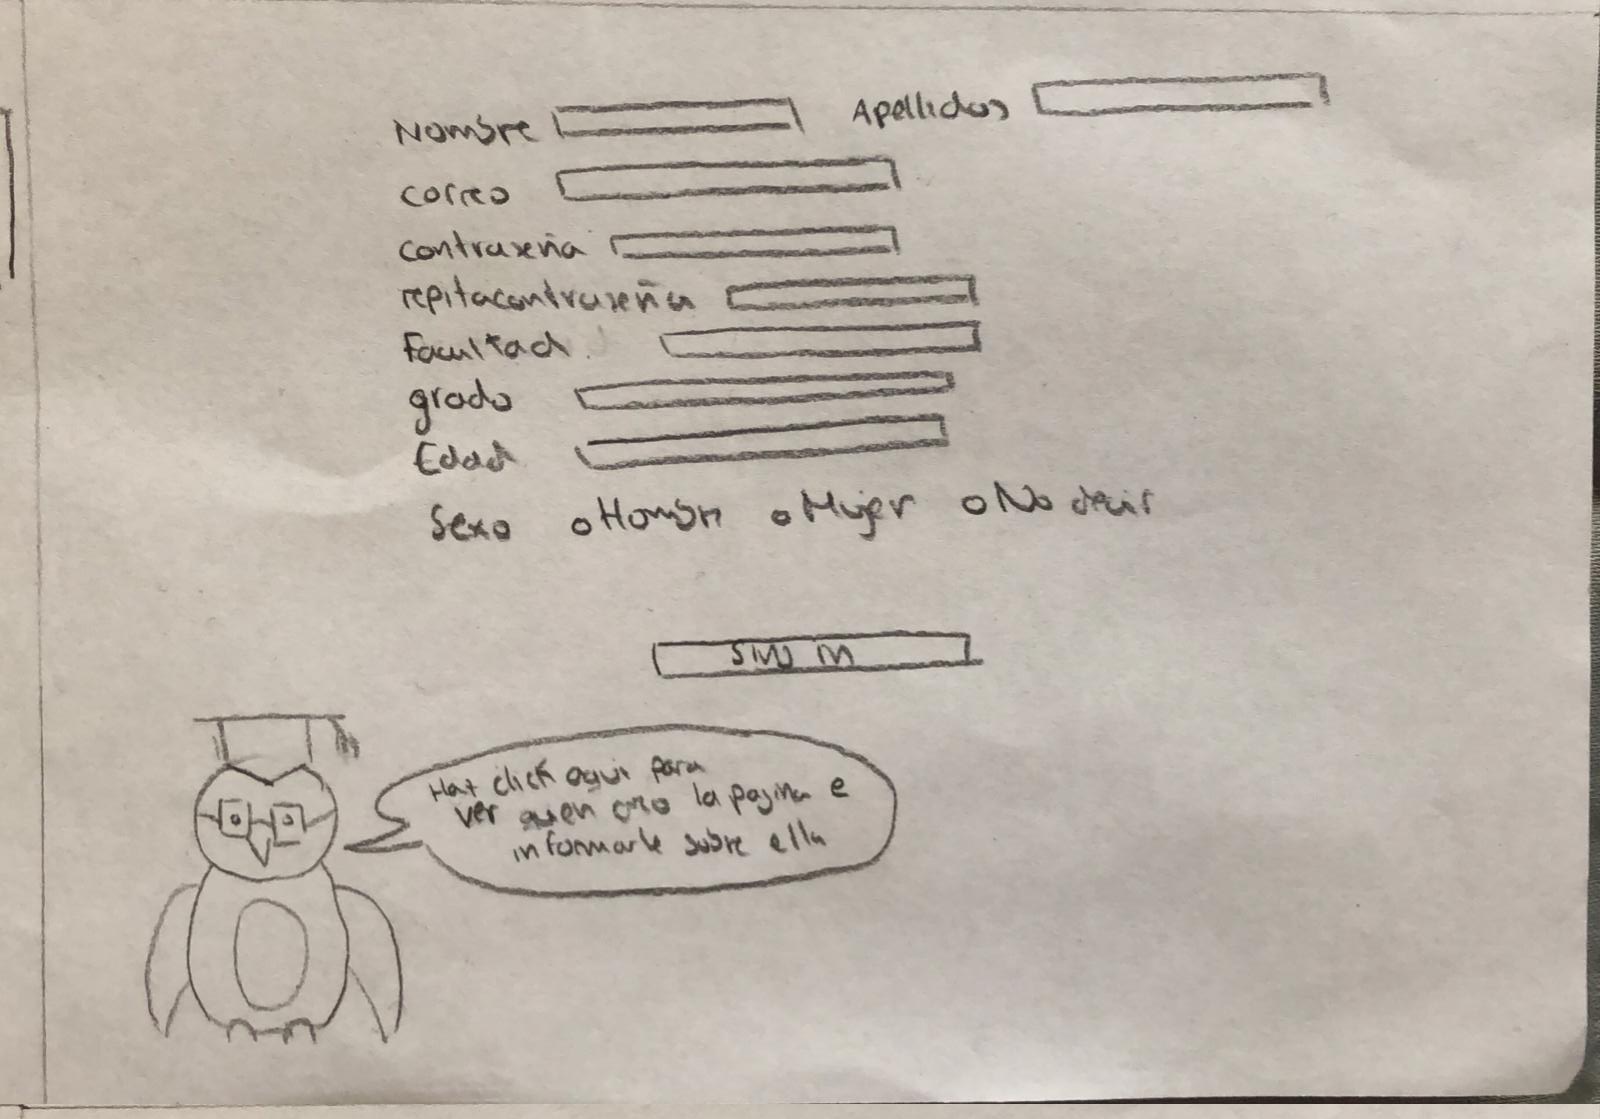 Nombre Apellidos
correo
contraseña
repita contraseña
Facultad
grado
Edad
Sexo Hombre Mujer No decir
Haz click aqui para
ver quien creo la pagina e
informarte sobre ella